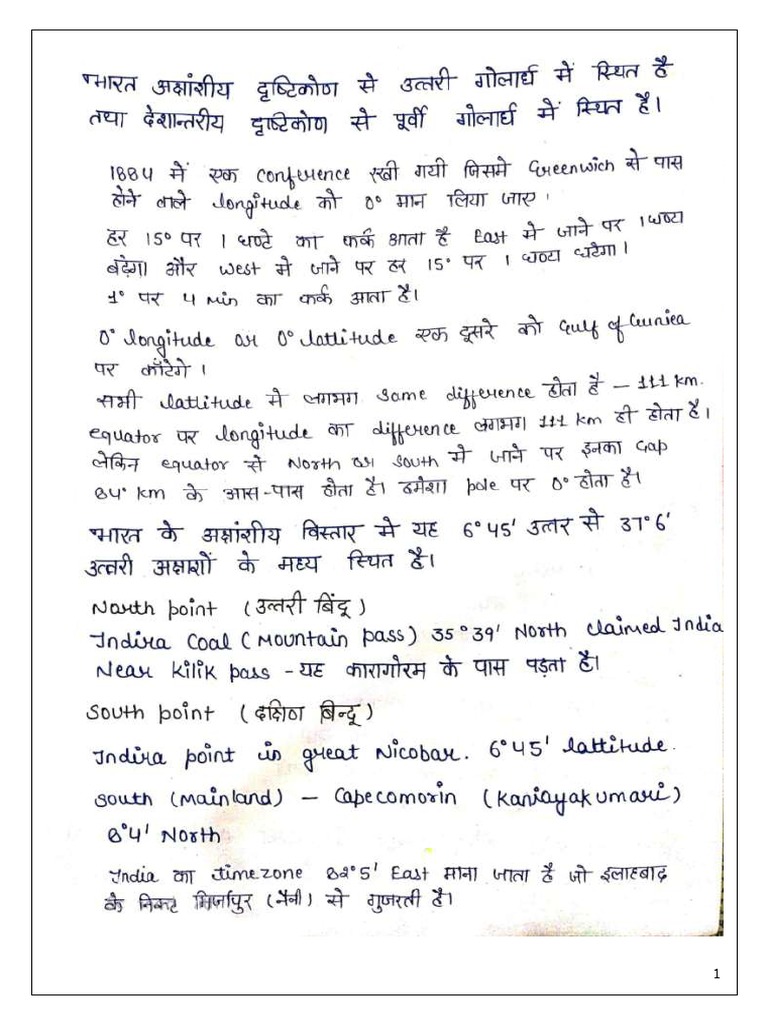 भारत अक्षांशीय दृष्टिकोण से उत्तरी गोलार्ध में स्थित है
तथा देशान्तरीय दृष्टिकोण से पूर्वी गोलार्ध में स्थित है।
1884 में एक conference रखी गयी जिसमे Greenwich से पास
होने वाले longitude को 0° मान लिया जाए।
हर 15° पर 1 घण्टे का फर्क आता है East मे जाने पर 1 घण्टा
बढ़ेगा और west में जाने पर हर 15° पर 1 घण्टा घटेगा।
1° पर 4 Min का फर्क आता है।
0° longitude or 0° lattitude एक दूसरे को Gulf of Guniea
पर काँटेगे।
सभी lattitude मे लगभग same difference होता है – 111 km.
equator पर longitude का difference लगभग 111 km ही होता है।
लेकिन equator से North or South में जाने पर इनका Gap
84° km के आस-पास होता है। हमेशा pole पर 0° होता है।
भारत के अक्षांशीय विस्तार मे यह 6°45' उत्तर से 37°6'
उत्तरी अक्षाशों के मध्य स्थित है।
North point (उत्तरी बिंदू)
Indira Coal (Mountain pass) 35°39' North claimed India
Near Kilik pass - यह कारागोरम के पास पड़ता है।
South point (दक्षिण बिन्दू)
Indira point in great Nicobar. 6°45' lattitude.
South (Mainland) – Capecomorin (Kaniayakumari)
8°4' North
India का timezone 82°5' East माना जाता है जो इलाहाबाद
के निकट मिर्जापुर (नैनी) से गुजरती है।
1